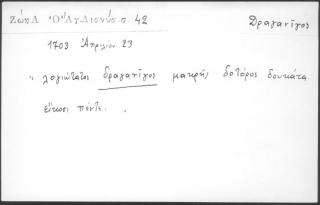 Ζώη Λ. Ὁ Ἅγ. Διονύσ. σ. 42 Δραγανῖγος
1703 Ἀπριλίου 23
" λογιώτατος δραγανῖγος μακρῆς δοτόρος δουκάτα
εἴκοσι πέντε.